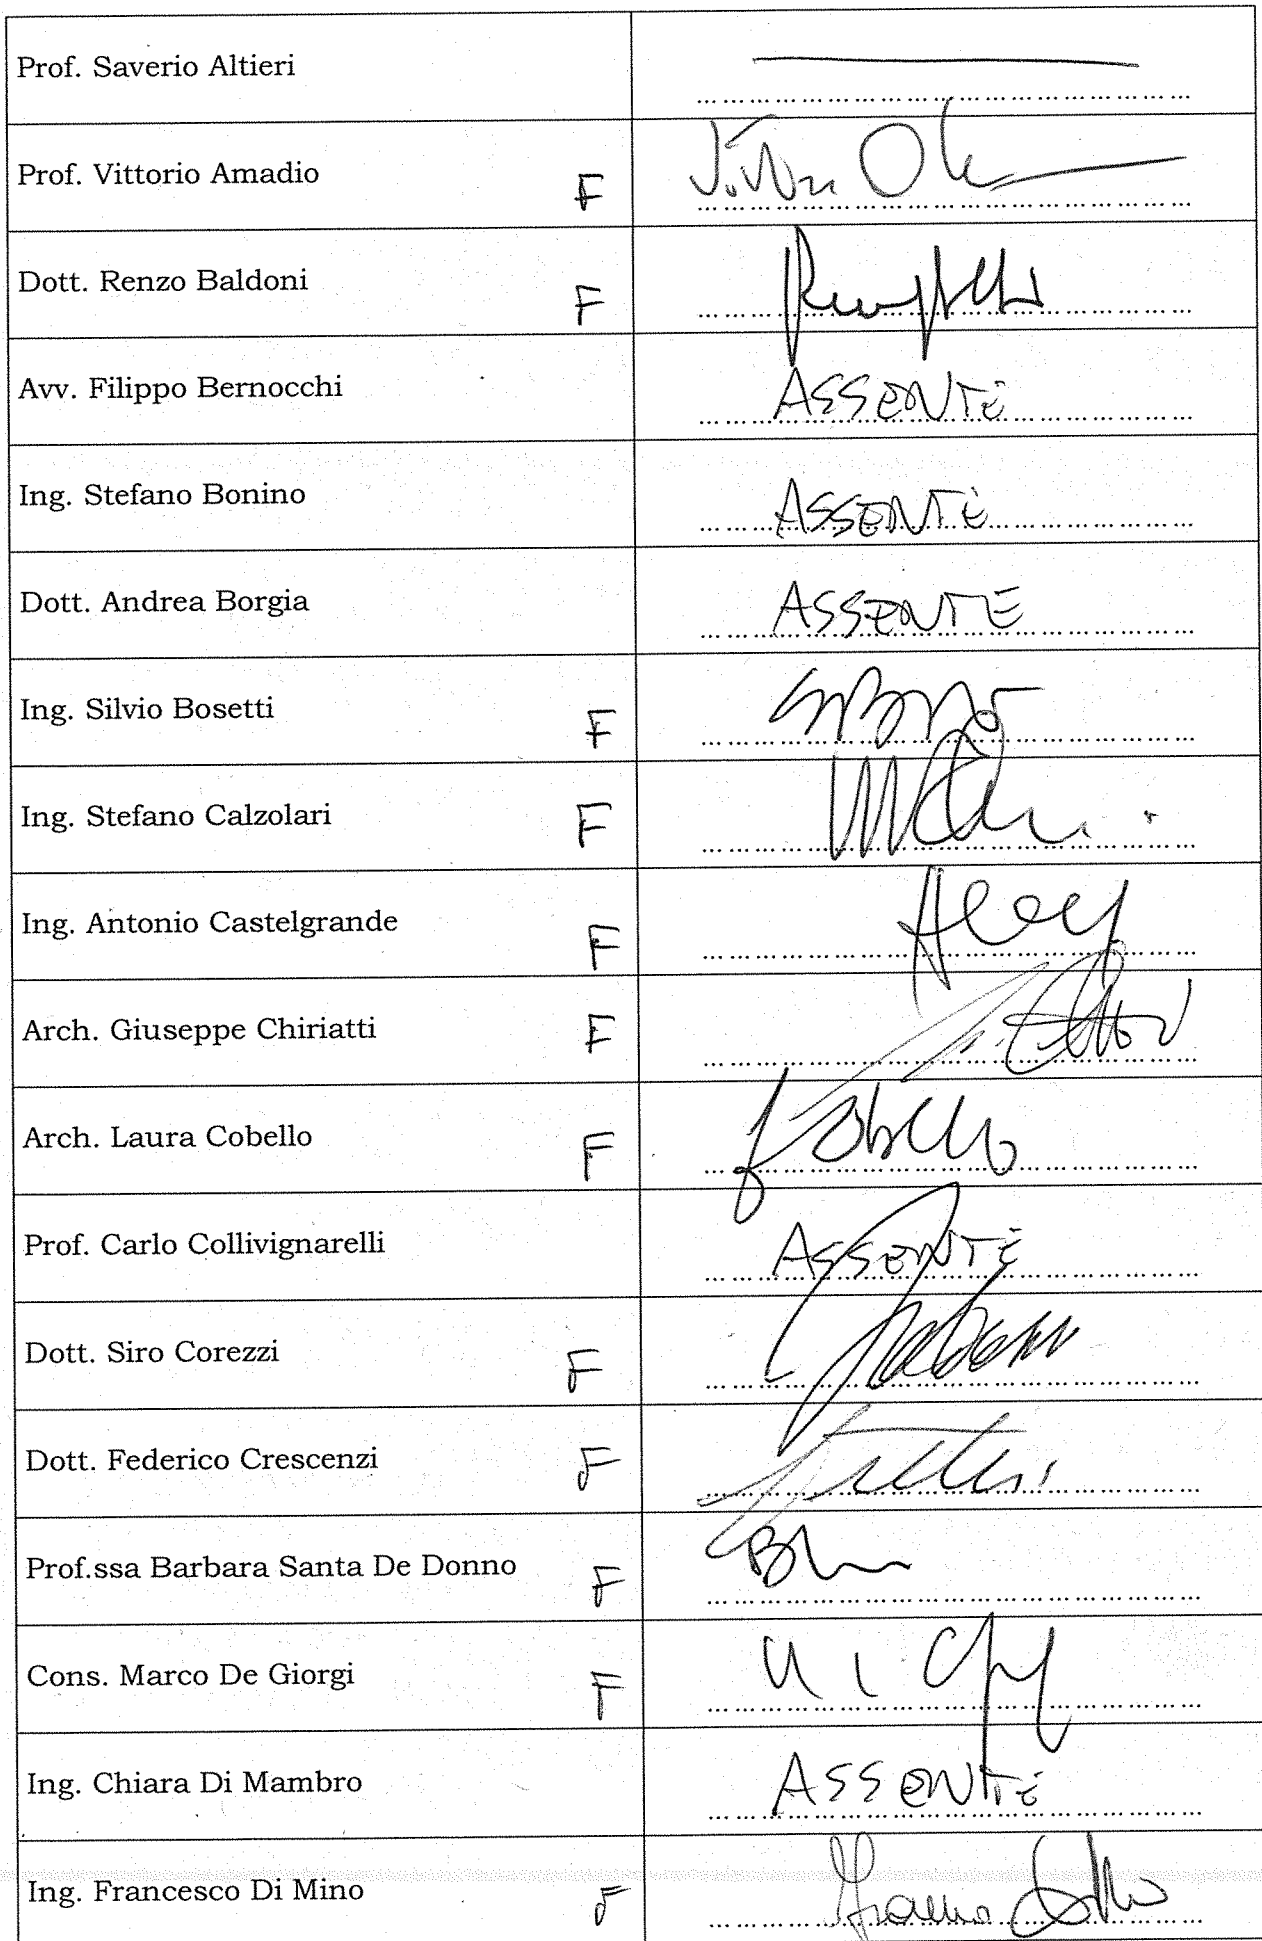 Prof. Saverio Altieri
Prof. Vittorio Amadio F
Dott. Renzo Baldoni F
Avv. Filippo Bernocchi ASSENTE
Ing. Stefano Bonino ASSENTE
Dott. Andrea Borgia ASSENTE
Ing. Silvio Bosetti F
Ing. Stefano Calzolari F
Ing. Antonio Castelgrande F
Arch. Giuseppe Chiriatti F
Arch. Laura Cobello F
Prof. Carlo Collivignarelli ASSENTE
Dott. Siro Corezzi F
Dott. Federico Crescenzi F
Prof.ssa Barbara Santa De Donno F
Cons. Marco De Giorgi F
Ing. Chiara Di Mambro ASSENTE
Ing. Francesco Di Mino F